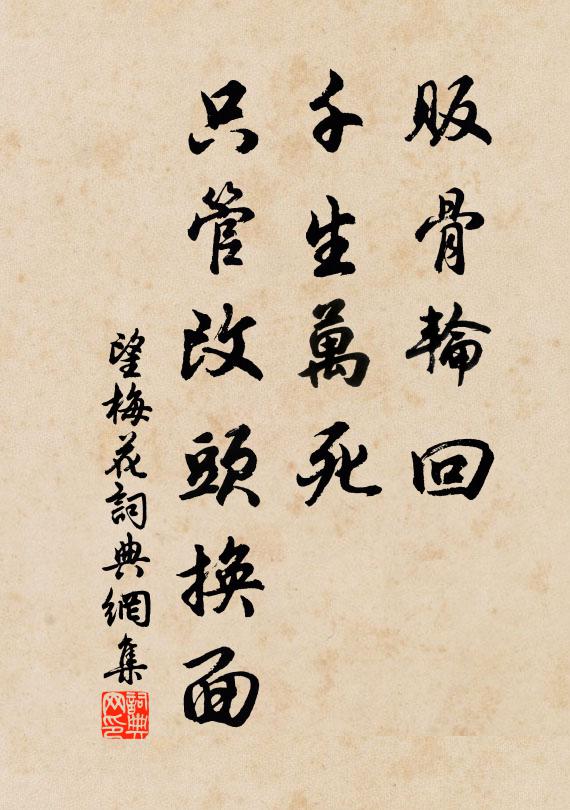 販骨輪回
千生萬死
只管改頭換面
望梅花詞典網集
詞典网印